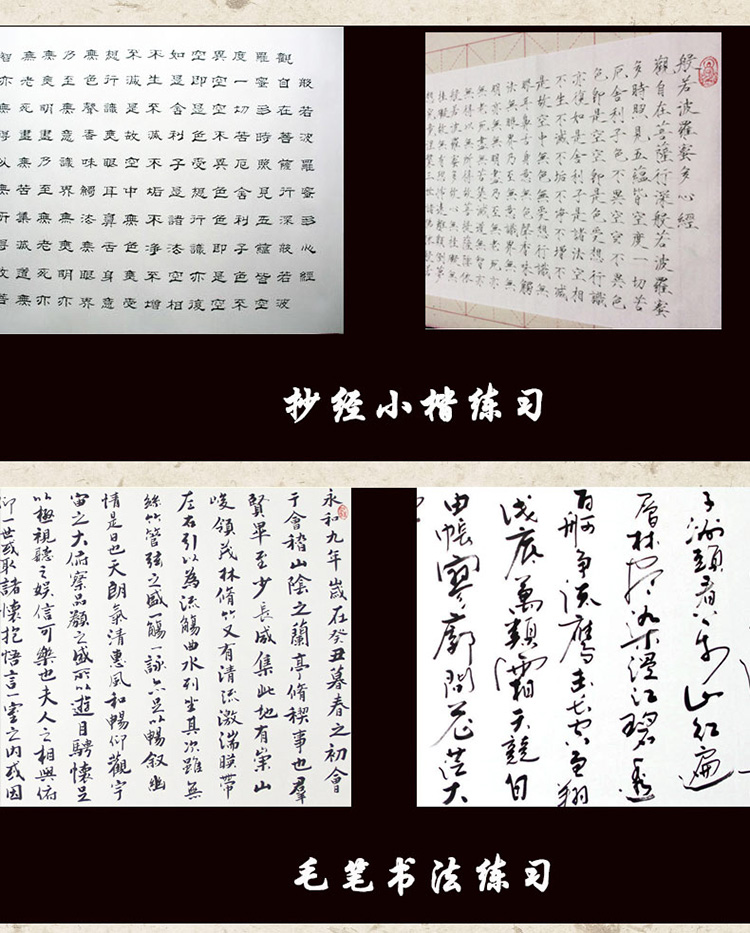 般若波羅蜜多心經
觀自在菩薩行深般若波
羅蜜多時照見五蘊皆空
度一切苦厄舍利子色不
異空空不異色色即是空
空即是色受想行識亦復
如是舍利子是諸法空相
不生不滅不垢不淨不增
不減是故空中無色無受
想行識無眼耳鼻舌身意
無色聲香味觸法無眼界
乃至無意識界無無明亦
無無明盡乃至無老死亦
無老死盡無苦集滅道無
智亦無得以無所得故菩
般若波羅蜜多心經
觀自在菩薩行深般若波羅蜜
多時照見五蘊皆空度一切苦
厄舍利子色不異空空不異色
色即是空空即是色受想行識
亦復如是舍利子是諸法空相
不生不滅不垢不淨不增不減
是故空中無色無受想行識無
眼耳鼻舌身意無色聲香味觸
法無眼界乃至無意識界無無
明亦無無明盡乃至無老死亦
無老死盡無苦集滅道無智亦
抄经小楷练习
永和九年歲在癸丑暮春之初會
于會稽山陰之蘭亭脩稧事也羣
賢畢至少長咸集此地有崇山
峻領茂林脩竹又有清流激湍暎帶
左右引以為流觴曲水列坐其次雖無
絲竹管弦之盛一觴一詠亦足以暢敘幽
情是日也天朗氣清惠風和暢仰觀宇
宙之大俯察品類之盛所以遊目騁懷足
以極視聽之娛信可樂也夫人之相與俯
仰一世或取諸懷抱悟言一室之內或因
子洲頭看万山红遍
層林盡染漫江碧透
百舸争流鹰击长空鱼翔
浅底萬類霜天競自
由悵寥廓問蒼茫大
毛笔书法练习